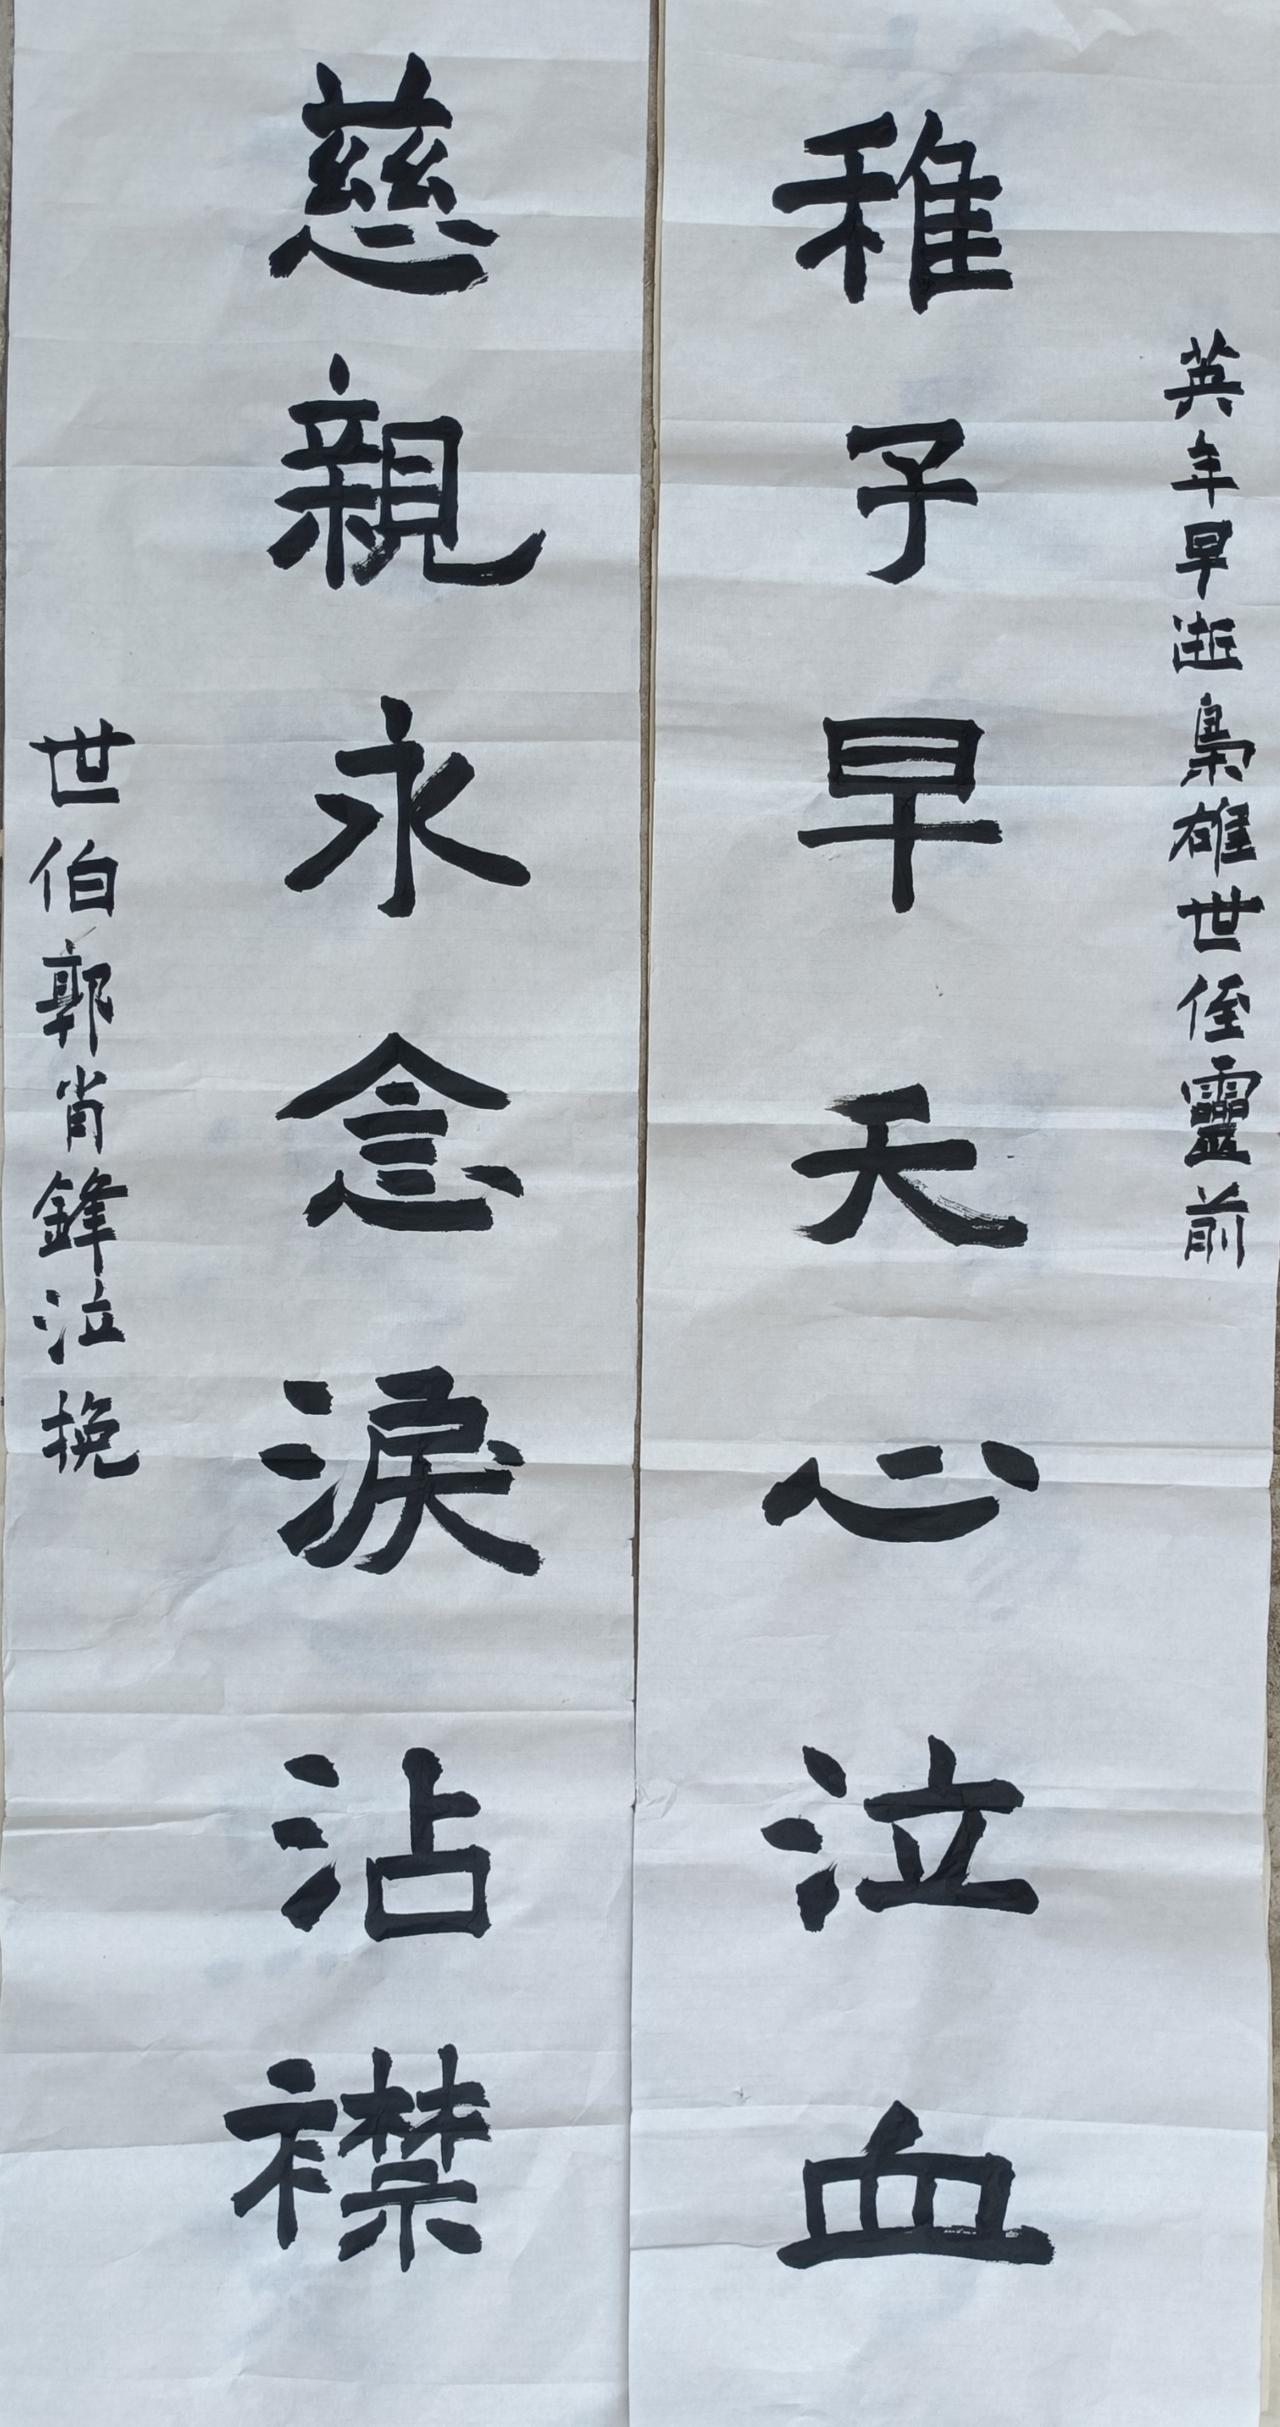 英年早逝梟雄世侄靈前
稚子早夭心泣血
慈親永念淚沾襟
世伯郭肖鋒泣挽